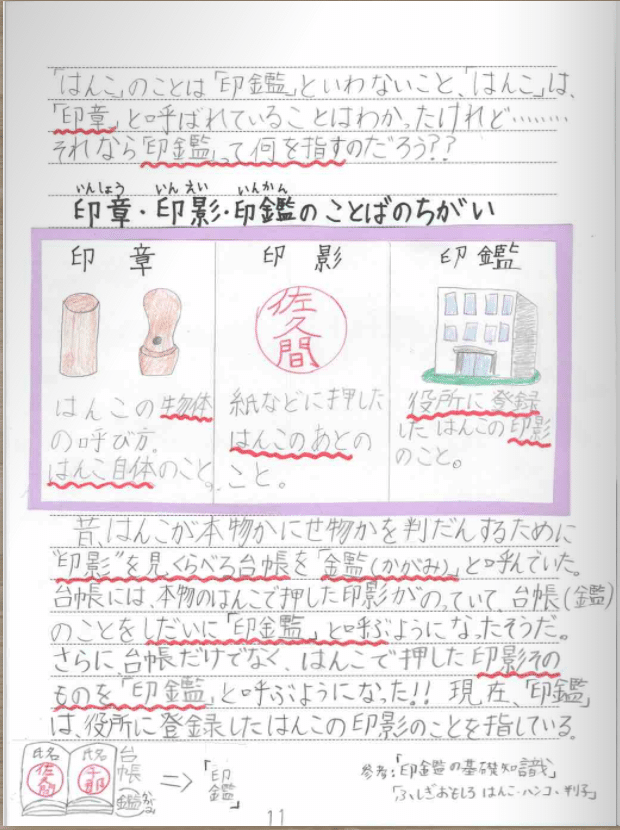 「はんこ」のことは「印鑑」といわないこと、「はんこ」は、
「印章」と呼ばれていることはわかったけれど………
それなら「印鑑」って何を指すのだろう??
いんしょう いんえい いんかん
印章・印影・印鑑のことばのちがい
印章
はんこの生物体
の呼び方。
はんこ自体のこと。
印影
佐久間
紙などに押した
はんこのあとの
こと。
印鑑
役所に登録
したはんこの印影
のこと。
昔、はんこが本物かにせ物かを判だんするために
"印影"を見くらべる台帳を「鑑(かがみ)」と呼んでいた。
台帳には、本物のはんこで押した印影がのっていて、台帳(鑑)
のことをしだいに「印鑑」と呼ぶようになったそうだ。
さらに、台帳だけでなく、はんこで押した印影その
ものを「印鑑」と呼ぶようになった!! 現在、「印鑑」
は、役所に登録したはんこの印影のことを指している。
氏名 佐久間
氏名
台帳(鑑)
=> 「印鑑」
参考:「印鑑の基礎知識」
「ふしぎおもしろ はんこ・ハンコ・判子」
11